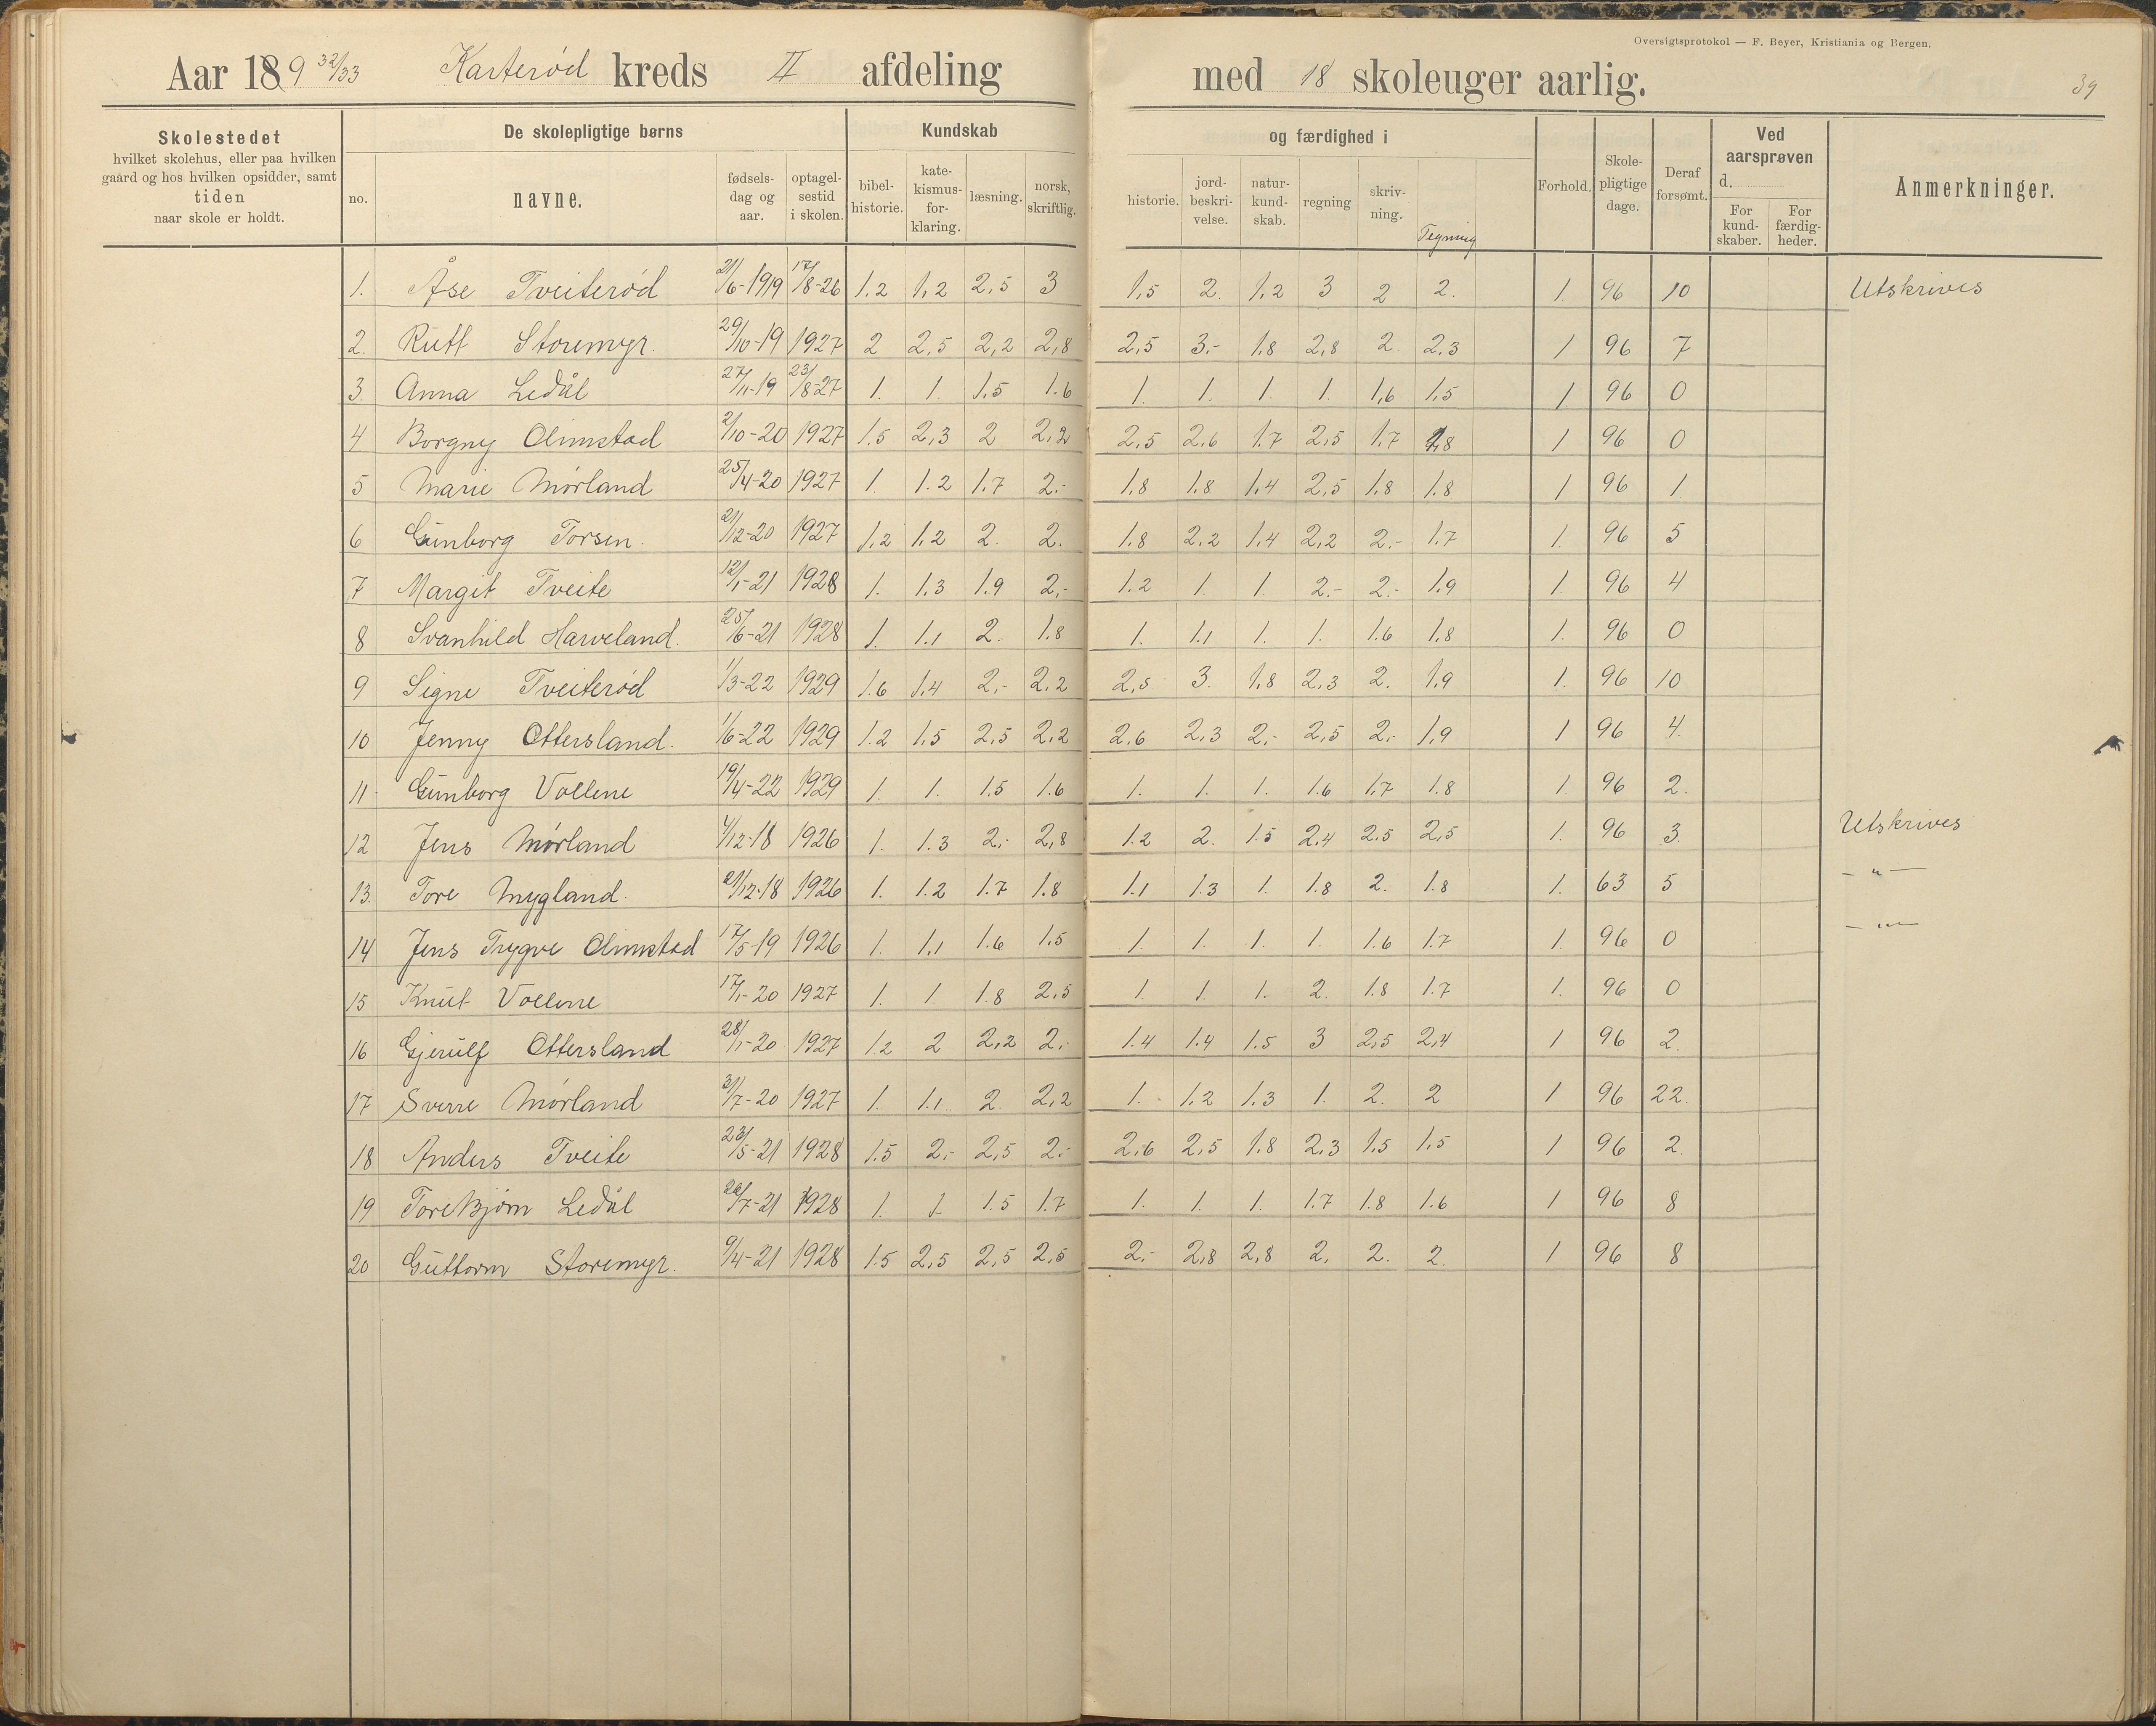 Oversigtsprotokol — F. Beyer, Kristiania og Bergen.
Aar 189 32/33 Karterød kreds II afdeling med 18 skoleuger aarlig. 39
Skolestedet
hvilket skolehus, eller paa hvilken
gaard og hos hvilken opsidder, samt
tiden
naar skole er holdt.
De skolepligtige børns
no. navne. fødsels-dag og aar. optagel-sestid i skolen.
Kundskab og færdighed i
bibel-historie. kate-kismus-for-klaring. læsning. norsk, skriftlig. historie. jord-beskri-velse. natur-kund-skab. regning skriv-ning. Tegning
Forhold. Skole-pligtige dage. Deraf forsømt.
Ved aarsprøven d.
For kund-skaber. For færdig-heder.
Anmerkninger.
1. Åse Tveiterød 21/6-1919 17/8-26 1.2 1,2 2,5 3 1,5 2. 1,2 3 2 2. 1. 96 10 Utskrives
2. Rutt Storemyr. 29/10-19 1927 2 2,5 2,2 2,8 2,5 3.- 1.8 2,8 2. 2.3 1 96 7
3. Anna Ledål 27/11-19 23/8-27 1. 1. 1.5 1.6 1. 1. 1. 1. 1,6 1,5 1 96 0
4 Borgny Olimstad 2/10-20 1927 1.5 2,3 2 2,2 2,5 2,6 1.7 2,5 1.7 1,8 1 96 0
5 Marie Mørland 25/4-20 1927 1. 1.2 1.7 2.- 1.8 1.8 1,4 2,5 1.8 1.8 1 96 1.
6 Gunborg Torsen. 21/12-20 1927 1,2 1.2 2. 2. 1.8 2.2 1,4 2,2 2.- 1.7 1. 96 5
7 Margit Tveite 12/1-21 1928 1. 1.3 1.9 2,- 1.2 1. 1. 2.- 2.- 1.9 1. 96 4
8 Svanhild Harveland. 25/6-21 1928 1. 1.1 2. 1.8 1. 1.1 1. 1. 1.6 1.8 1. 96 0
9 Signe Tveiterød 1/3-22 1929 1.6 1,4 2,- 2,2 2,5 3. 1,8 2,3 2. 1,9 1. 96 10
10 Jenny Ottersland. 1/6-22 1929 1.2 1,5 2,5 2,2 2,6 2,3 2,- 2,5 2.- 1,9 1 96 4.
11 Gunborg Vollene 19/4-22 1929 1. 1. 1.5 1.6 1. 1. 1. 1.6 1.7 1.8 1. 96 2.
12 Jens Mørland 4/12-18 1926 1. 1.3 2,- 2,8 1.2 2. 1.5 2,4 2.5 2,5 1. 96 3. Utskrives
13. Tore Mygland. 21/12-18 1926 1. 1.2 1.7 1.8 1.1 1.3 1. 1.8 2. 1.8 1. 63 5 — " —
14 Jens Trygve Olimstad 17/5-19 1926 1. 1.1 1.6 1.5 1. 1. 1. 1. 1.6 1.7 1. 96 0 — " —
15 Knut Vollene 17/1-20 1927 1. 1. 1.8 2,5 1. 1. 1. 2. 1.8 1.7 1. 96 0
16 Gjerulf Ottersland 28/1-20 1927 1.2 2 2,2 2,- 1.4 1.4 1.5 3 2,5 2,4 1 96 2.
17 Sverre Mørland 31/7-20 1927 1. 1.1 2. 2,2 1. 1,2 1,3 1. 2. 2 1 96 22.
18 Anders Tveite 23/5-21 1928 1.5 2.- 2,5 2.- 2,6 2,5 1.8 2,3 1,5 1,5 1 96 2.
19 Torebjørn Ledål 26/7-21 1928 1. 1. 1.5 1.7 1. 1. 1. 1.7 1.8 1.6 1 96 8
20 Guttorm Storemyr. 9/4-21 1928 1.5 2,5 2,5 2,5 2.- 2,8 2,8 2. 2. 2. 1 96 8